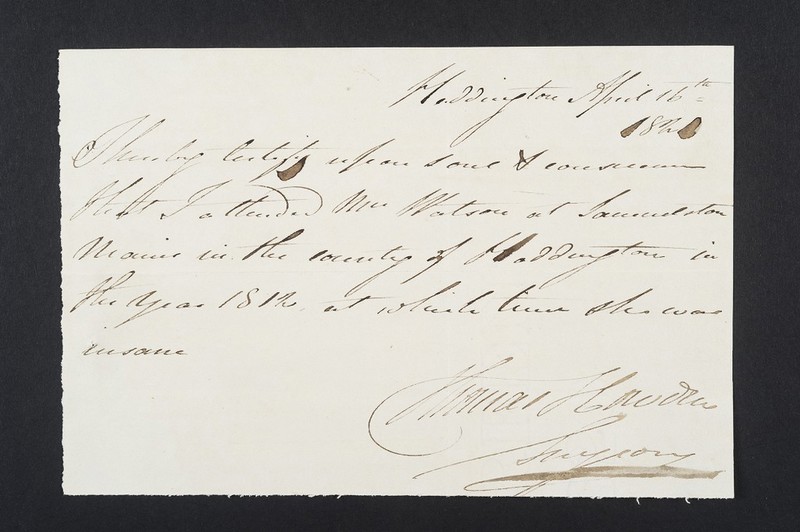 Haddington April 16th
182
I hereby certify upon soul & conscience
that I attended Mrs Watson at Samuelston
Mains in the county of Haddington in
the year 1812 at which time she was
insane
Thomas Howden
Surgeon